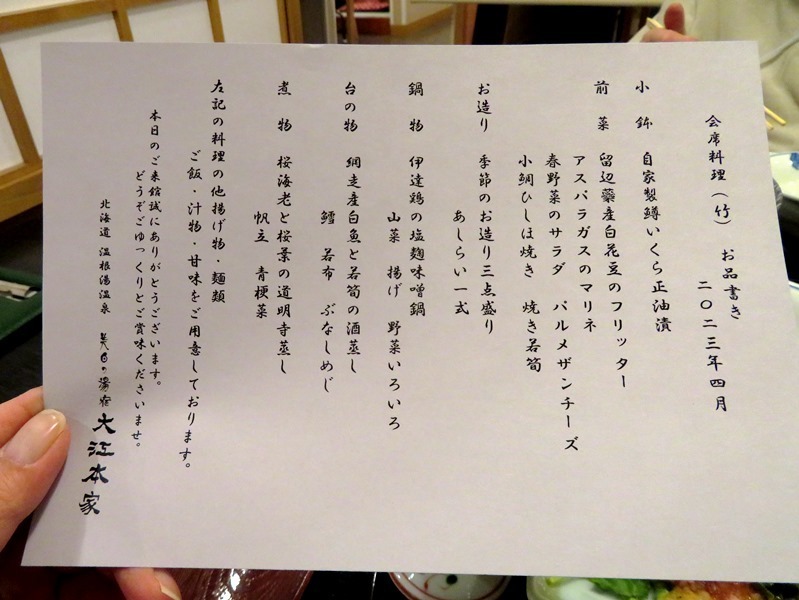 会席料理(竹) お品書き
二〇二三年四月
小鉢 自家製鱒いくら正油漬
前菜 留辺蘂産白花豆のフリッター
アスパラガスのマリネ
春野菜のサラダ パルメザンチーズ
小鯛ひしほ焼き 焼き若筍
お造り 季節のお造り三点盛り
あしらい一式
鍋物 伊達鶏の塩麹味噌鍋
山菜 揚げ 野菜いろいろ
台の物 網走産白魚と若筍の酒蒸し
鱈 若布 ぶなしめじ
煮物 桜海老と桜葉の道明寺蒸し
帆立 青梗菜
左記の料理の他揚げ物・麺類
ご飯・汁物・甘味をご用意しております。
本日のご来館誠にありがとうございます。
どうぞごゆっくりとご賞味くださいませ。
北海道 温根湯温泉 美白の湯宿 大江本家